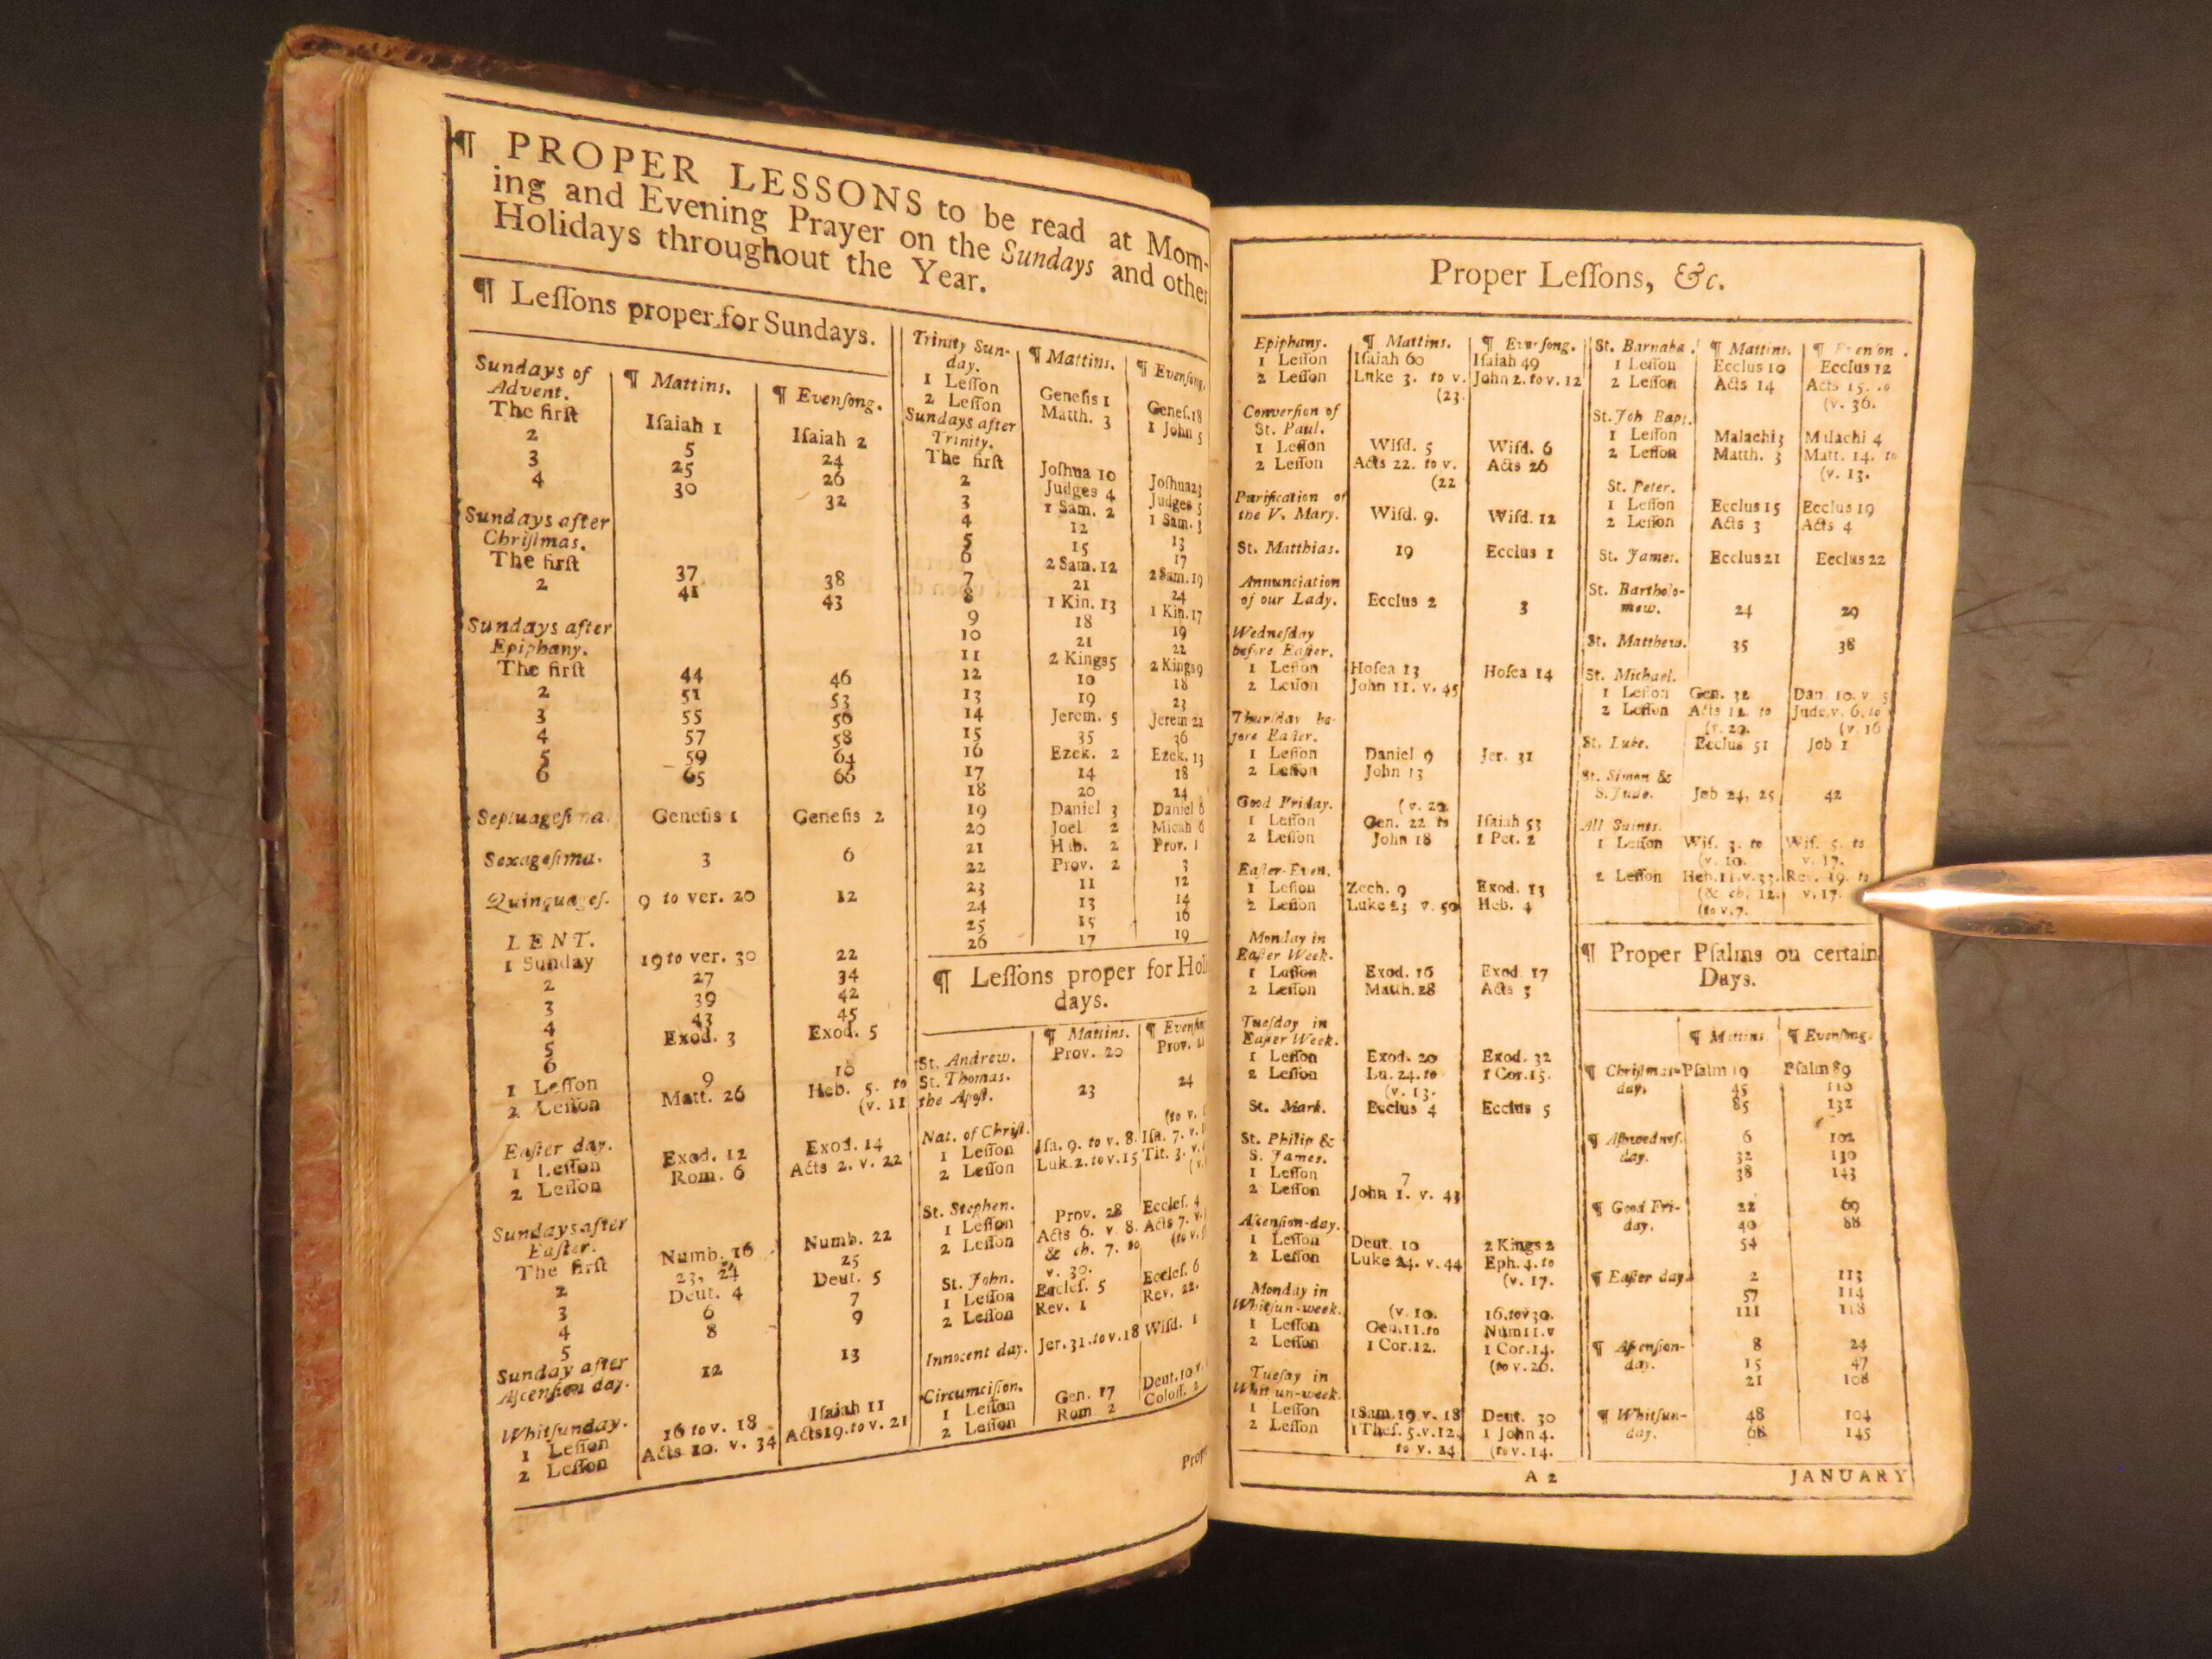 ¶ PROPER LESSONS to be read at Morn-
ing and Evening Prayer on the Sundays and other
Holidays throughout the Year.
¶ Leſſons proper for Sundays.
Sundays of
Advent. ¶ Mattins. ¶ Evenſong.
The firſt Iſaiah 1 Iſaiah 2
2 5 24
3 25 26
4 30 32
Sundays after
Chriſtmas.
The firſt 37 38
2 41 43
Sundays after
Epiphany.
The firſt 44 46
2 51 53
3 55 56
4 57 58
5 59 64
6 65 66
Septuageſima. Geneſis 1 Geneſis 2
Sexageſima. 3 6
Quinquageſ. 9 to ver. 20 12
LENT.
1 Sunday 19 to ver. 30 22
2 27 34
3 39 42
4 43 45
5 Exod. 3 Exod. 5
6
1 Leſſon 9 10
2 Leſſon Matt. 26 Heb. 5. to
(v. 11
Eaſter day.
1 Leſſon Exod. 12 Exod. 14
2 Leſſon Rom. 6 Acts 2. v. 22
Sundays after
Eaſter.
The firſt Numb. 16 Numb. 22
2 23, 24 25
3 Deut. 4 Deut. 5
4 6 7
5 8 9
Sunday after
Aſcenſion day. 12 13
Whitſunday.
1 Leſſon 16 to v. 18 Iſaiah 11
2 Leſſon Acts 10. v. 34 Acts 19. to v. 21
Trinity Sun-
day. ¶ Mattins. ¶ Evenſong.
1 Leſſon Geneſis 1 Geneſ. 18
2 Leſſon Matth. 3 1 John 5
Sundays after
Trinity.
The firſt Joſhua 10 Joſhua 23
2 Judges 4 Judges 5
3 1 Sam. 2 1 Sam. 3
4 12 13
5 15 17
6 2 Sam. 12 2 Sam. 19
7 21 24
8 1 Kin. 13 1 Kin. 17
9 18 19
10 21 22
11 2 Kings 5 2 Kings 9
12 10 18
13 19 23
14 Jerem. 5 Jerem 22
15 35 36
16 Ezek. 2 Ezek. 13
17 14 18
18 20 24
19 Daniel 3 Daniel 6
20 Joel 2 Micah 6
21 Hab. 2 Prov. 1
22 Prov. 2 3
23 11 12
24 13 14
25 15 16
26 17 19
¶ Leſſons proper for Holi
days.
¶ Mattins. ¶ Evenſong
St. Andrew. Prov. 20 Prov. 21
St. Thomas.
the Apoſt. 23 24
Nat. of Chriſt. (to v.
1 Leſſon Iſa. 9. to v. 8. Iſa. 7. v.
2 Leſſon Luk. 2. to v. 15 Tit. 3. v.
St. Stephen.
1 Leſſon Prov. 28 Eccleſ. 4
2 Leſſon Acts 6. v 8. Acts 7. v.
& ch. 7. to (to v.
v. 30.
St. John.
1 Leſſon Eccleſ. 5 Eccleſ. 6
2 Leſſon Rev. 1 Rev. 22.
Innocent day. Jer. 31. to v. 18 Wiſd. 1
Circumciſion.
1 Leſſon Gen. 17 Deut. 10 v.
2 Leſſon Rom. 2 Coloſſ. 2
Prop
Proper Leſſons, &c.
Epiphany. ¶ Mattins. ¶ Evenſong.
1 Leſſon Iſaiah 60 Iſaiah 49
2 Leſſon Luke 3. to v. John 2. to v. 12
(23.
Converſion of
St. Paul.
1 Leſſon Wiſd. 5 Wiſd. 6
2 Leſſon Acts 22. to v. Acts 26
(22
Purification of
the V. Mary. Wiſd. 9. Wiſd. 12
St. Matthias. 19 Ecclus 1
Annunciation
of our Lady. Ecclus 2 3
Wedneſday
before Eaſter.
1 Leſſon Hoſea 13 Hoſea 14
2 Leſſon John 11. v. 45
Thurſday be-
fore Eaſter.
1 Leſſon Daniel 9 Jer. 31
2 Leſſon John 13
Good Friday. (v. 20.
1 Leſſon Gen. 22 to Iſaiah 53
2 Leſſon John 18 1 Pet. 2
Eaſter-Even.
1 Leſſon Zech. 9 Exod. 13
2 Leſſon Luke 23 v. 50 Heb. 4
Monday in
Eaſter Week.
1 Leſſon Exod. 16 Exod. 17
2 Leſſon Matth. 28 Acts 3
Tueſday in
Eaſter Week.
1 Leſſon Exod. 20 Exod. 32
2 Leſſon Lu. 24. to 1 Cor. 15.
(v. 13.
St. Mark. Ecclus 4 Ecclus 5
St. Philip &
S. James.
1 Leſſon 7
2 Leſſon John 1. v. 43
Aſcenſion-day.
1 Leſſon Deut. 10 2 Kings 2
2 Leſſon Luke 24. v. 44 Eph. 4. to
(v. 17.
Monday in
Whitſun-week. (v. 10. 16. to v 30.
1 Leſſon Gen. 11. to Num 11. v
2 Leſſon 1 Cor. 12. 1 Cor. 14.
(to v. 26.
Tueſay in
Whitſun-week.
1 Leſſon 1 Sam. 19 v. 18 Deut. 30
2 Leſſon 1 Theſ. 5. v. 12. 1 John 4.
to v. 24 (to v. 14.
St. Barnaba. ¶ Mattins. ¶ Evenſon.
1 Leſſon Ecclus 10 Ecclus 12
2 Leſſon Acts 14 Acts 15. to
(v. 36.
St. Joh Bapt.
1 Leſſon Malachi 3 Malachi 4
2 Leſſon Matth. 3 Matt. 14. to
(v. 13.
St. Peter.
1 Leſſon Ecclus 15 Ecclus 19
2 Leſſon Acts 3 Acts 4
St. James. Ecclus 21 Ecclus 22
St. Bartholo-
mew. 24 29
St. Matthew. 35 38
St. Michael.
1 Leſſon Gen. 32 Dan. 10. v. 5
2 Leſſon Acts 12. to Jude v. 6. to
(v. 20. (v. 16
St. Luke. Ecclus 51 Job 1
St. Simon &
S. Jude. Job 24, 25 42
All Saints.
1 Leſſon Wiſ. 3. to Wiſ. 5. to
(v. 10. v. 17.
2 Leſſon Heb. 11. v. 33. Rev. 19. to
(& ch. 12. v. 17.
(to v. 7.
¶ Proper Pſalms on certain
Days.
¶ Mattins ¶ Evenſong.
¶ Chriſtmas- Pſalm 19 Pſalm 89
day. 45 110
85 132
¶ Aſhwedneſ. 6 102
day. 32 130
38 143
¶ Good Fri- 22 69
day. 40 88
54
¶ Eaſter day. 2 113
57 114
111 118
¶ Aſcenſion- 8 24
day. 15 47
21 108
¶ Whitſun- 48 104
day. 68 145
A 2 JANUARY